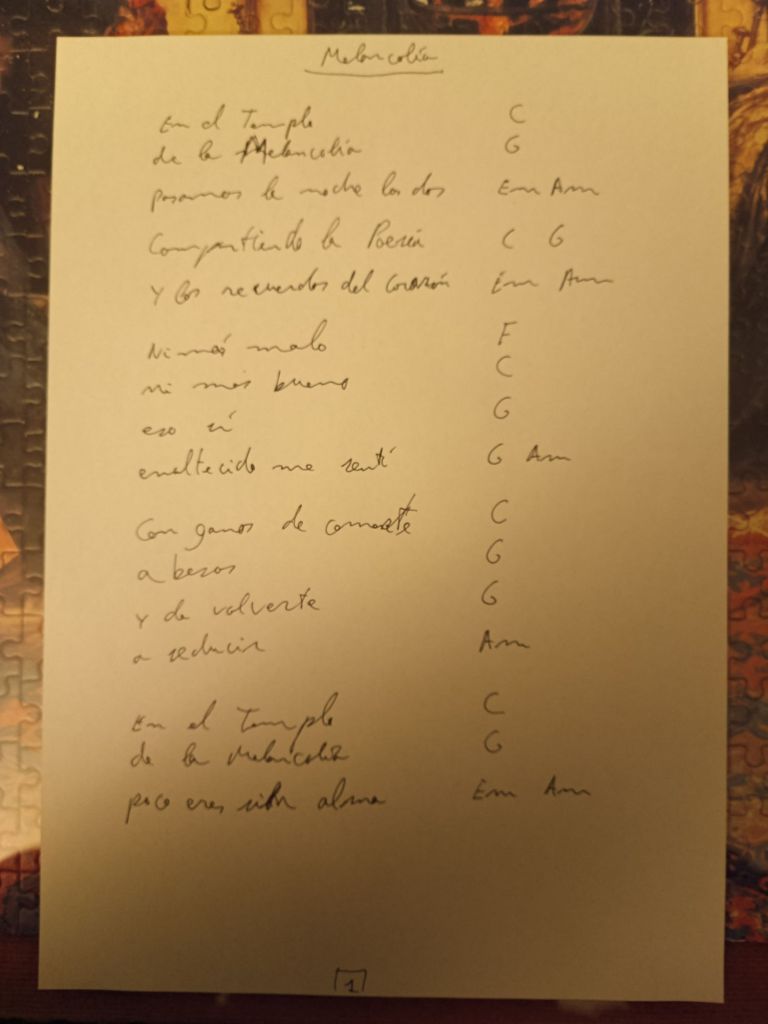 Melancolía
En el Temple C
de la Melancolía G
pasamos la noche los dos Em Am
Compartiendo la Poesía C G
y los recuerdos del corazón Em Am
Ni más malo F
ni más bueno C
eso sí G
enaltecido me sentí G Am
Con ganas de comerte C
a besos G
y de volverte G
a seducir Am
En el Temple C
de la Melancolía G
poco eres sin alma Em Am
1